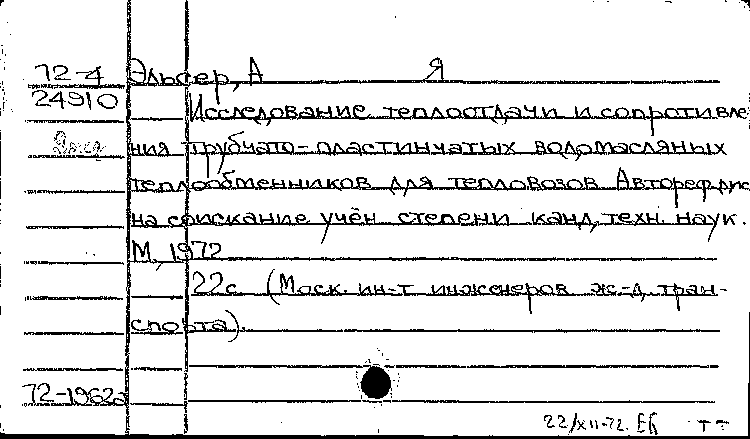 72-4 Эльсер, А Я
24910 Исследование теплоотдачи и сопротивле
ния трубчато-пластинчатых водомасляных
теплообменников для тепловозов Автореф. дис
на соискание учён степени канд, техн. наук.
М, 1972
22с (Моск. ин-т инженеров ж-д, тран-
спорта).
72-1962а
22/XII-72. ЕБ